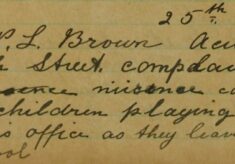 25th
P. L. Brown
Street. complai
nuisence ca
children playing
s office as they leav
ool